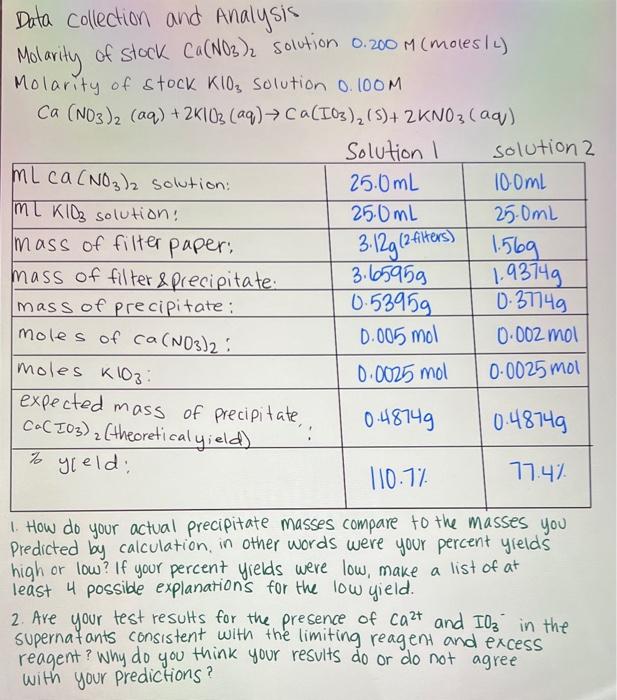 Data collection and Analysis
Molarity of stock Ca(NO3)2 solution 0.200 M (moles/L)
Molarity of stock KIO3 solution 0.100M
Ca (NO3)2 (aq) + 2KIO3 (aq) → Ca(IO3)2 (s) + 2KNO3 (aq)
Solution 1 solution 2
mL Ca(NO3)2 solution: 25.0mL 10.0mL
mL KIO3 solution: 25.0mL 25.0mL
mass of filter paper: 3.12g (2 filters) 1.56g
mass of filter & precipitate: 3.65959 1.9374g
mass of precipitate: 0.5395g 0.3774g
moles of Ca(NO3)2: 0.005 mol 0.002 mol
moles KIO3: 0.0025 mol 0.0025 mol
expected mass of precipitate,
Ca(IO3)2 (theoretical yield): 0.4874g 0.4874g
% yield: 110.7% 77.4%
1. How do your actual precipitate masses compare to the masses you
Predicted by calculation, in other words were your percent yields
high or low? If your percent yields were low, make a list of at
least 4 possible explanations for the low yield.
2. Are your test results for the presence of Ca2+ and IO3- in the
supernatants consistent with the limiting reagent and excess
reagent? Why do you think your results do or do not agree
with your predictions?